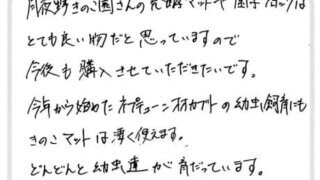 月夜野きのこ園さんの完熟マットや菌糸ブロックは
とても良い物だと思っていますので
今後も購入させていただきたいです。
今年から始めたネプチューンオオカブトの幼虫飼育にも
きのこマットは凄く使えます。
どんどんと幼虫達が育だっています。